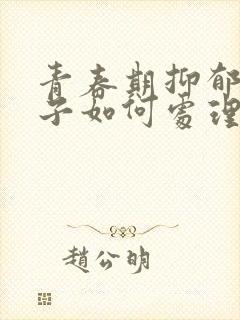 青春期抑郁
子如何處理
趙公明